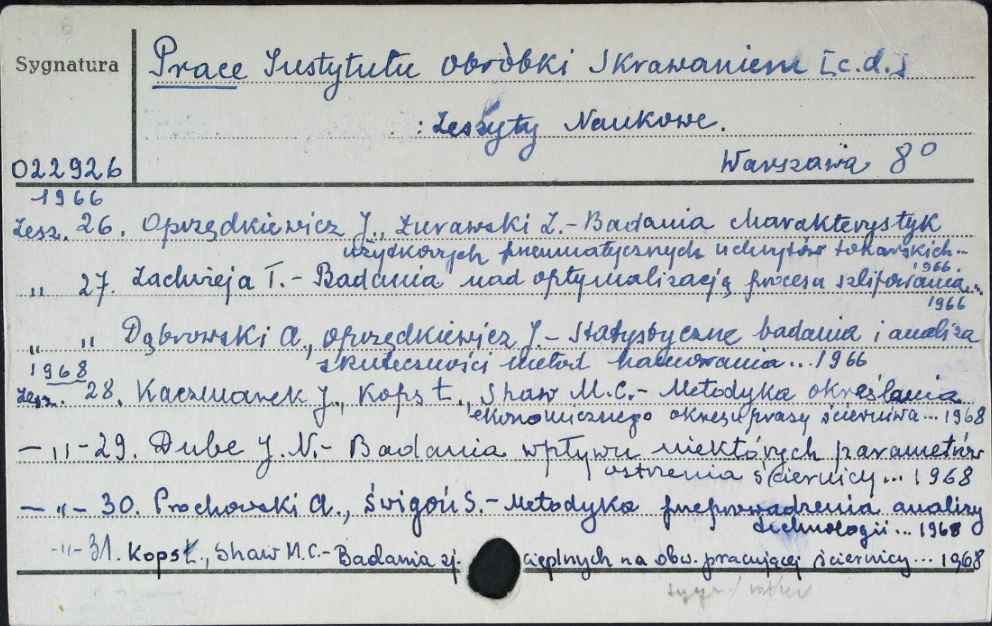 Sygnatura
Prace Instytutu Obróbki Skrawaniem [c.d.]
: Zeszyty Naukowe.
022926
Warszawa 8°
1966
Zesz. 26. Oprzędkiewicz J., Żurawski Z.- Badania charakterystyk
użytkowych pneumatycznych uchwytów tokarskich...
1966
„ 27. Zadwieja T. - Badania nad optymalizacją procesu szlifowania...
1966
„ „ Dąbrowski A., Oprzędkiewicz J. - Statystyczne badania i analiza
skuteczności metod hamowania... 1966
1968
Zesz. 28. Kaczmarek J., Kops Ł., Shaw M.C. - Metodyka określania
ekonomicznego okresu pracy ścierniwa... 1968
- „ - 29. Dube J. N. - Badania wpływu niektórych parametrów
ostrzenia ściernicy... 1968
- „ - 30. Prochowski A., Świgoń S. - Metodyka przeprowadzenia analizy
technologii... 1968
- „ - 31. Kops Ł., Shaw M.C. - Badania zj. cieplnych na obw. pracującej ściernicy... 1968